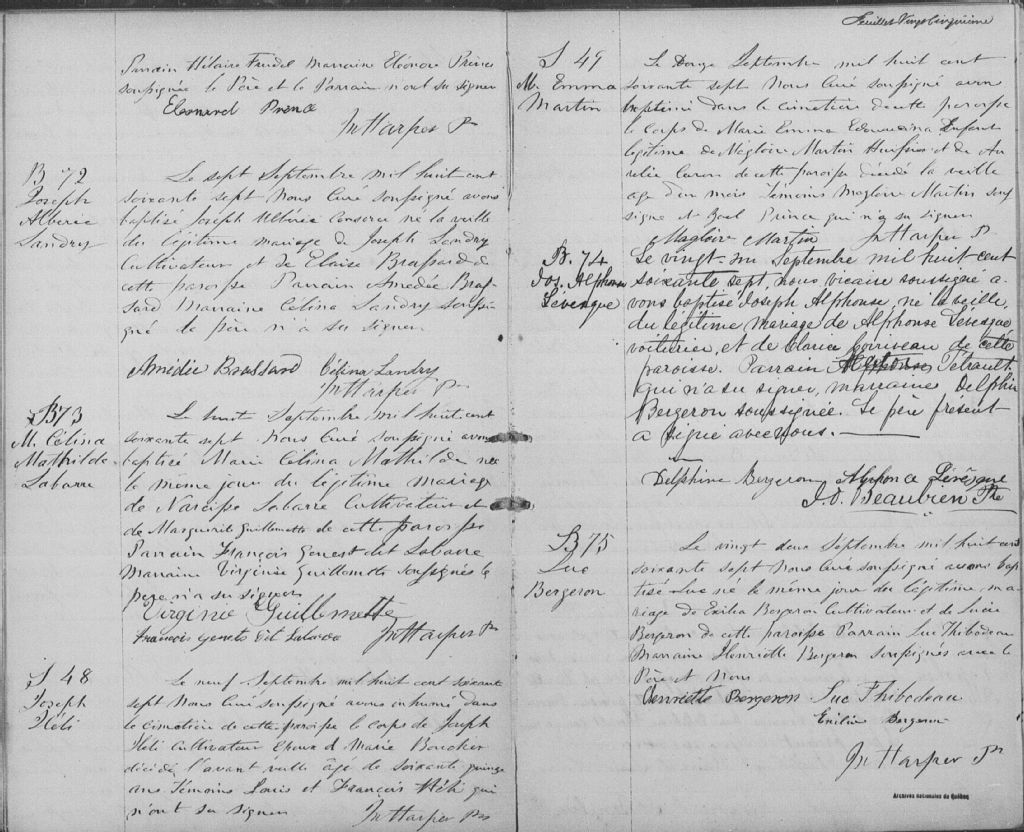 Parrain Hilaire Trudel Marraine Eléonore Prince
soussignée le Père et le Parrain n'ont su signer
Eleonard Prince
Jn Harper Ptr
B 72
Joseph
Albéric
Landry
Le sept Septembre mil huit cent
soixante sept Nous Curé soussigné avons
baptisé Joseph Albéric né la veille
du légitime mariage de Joseph Landry
Cultivateur et de Elaise Brassard de
cette paroisse Parrain Amédée Bras-
sard Marraine Célina Landry soussi-
gné le père n'a su signer
Amédée Brassard Célina Landry
Jn Harper Ptr
B 73
M. Célina
Mathilde
Labarre
Le huit Septembre mil huit cent
soixante sept Nous Curé soussigné avons
baptisé Marie Célina Mathilde née
le même jour du légitime mariage
de Narcisse Labarre Cultivateur et
de Marguerite Guillemette de cette paroisse
Parrain François Genest dit Labarre
Marraine Virginie Guillemette soussignés le
père n'a su signer
Virginie Guillemette
francois genets dit Labarre Jn Harper Ptr
S 48
Joseph
Héli
Le neuf Septembre mil huit cent soixante
sept Nous Curé soussigné avons inhumé dans
le cimetière de cette paroisse le corps de Joseph
Héli Cultivateur Epoux d Marie Boucher
décédé l'avant veille âgé de soixante quinze
ans Témoins Louis et François Héli qui
n'ont su signer Jn Harper Ptr
Feuillet Vingt Cinquième
S 49
M. Emma
Martin
Le Douze Septembre mil huit cent
soixante sept Nous Curé soussigné avons
dans le cimetière de cette paroisse
le Corps de Marie Emma Edouardina Enfant
légitime de Magloire Martin et de Au
relie Caron de cette paroisse décédé la veille
age d'un mois Témoins Magloire Martin sous
signé et Prince qui n'a su signer
Magloire Martin Jn Harper P.
B. 74
Jos. Alphonse
Lévesque
Le vingt-un Septembre mil huit cent
soixante sept, nous vicaire soussigné a-
vons baptisé Joseph Alphonse, né la veille,
du légitime mariage de Alphonse Lévesque
voiturier, et de Clarice Corriveau de cette
paroisse. Parrain Alphonse Tétrault
qui n'a su signer, marraine Delphine
Bergeron soussignée. Le père présent
a signé avec nous.
Delphine Bergeron Alphonce Lévesque
J. O. Beaubien Ptre
B 75
Luc
Bergeron
Le vingt deux Septembre mil huit cent
soixante sept Nous Curé soussigné avons bap
tisé Luc né le même jour du légitime ma-
riage de Exilia Bergeron Cultivateur et de Lucie
Bergeron de cette paroisse Parrain Luc Thibodeau
Marraine Henriette Bergeron soussignés avec le
Père et Nous
Henriette Bergeron Luc Thibodeau
Emilien Bergeron
Jn Harper Ptr
Archives nationales du Québec